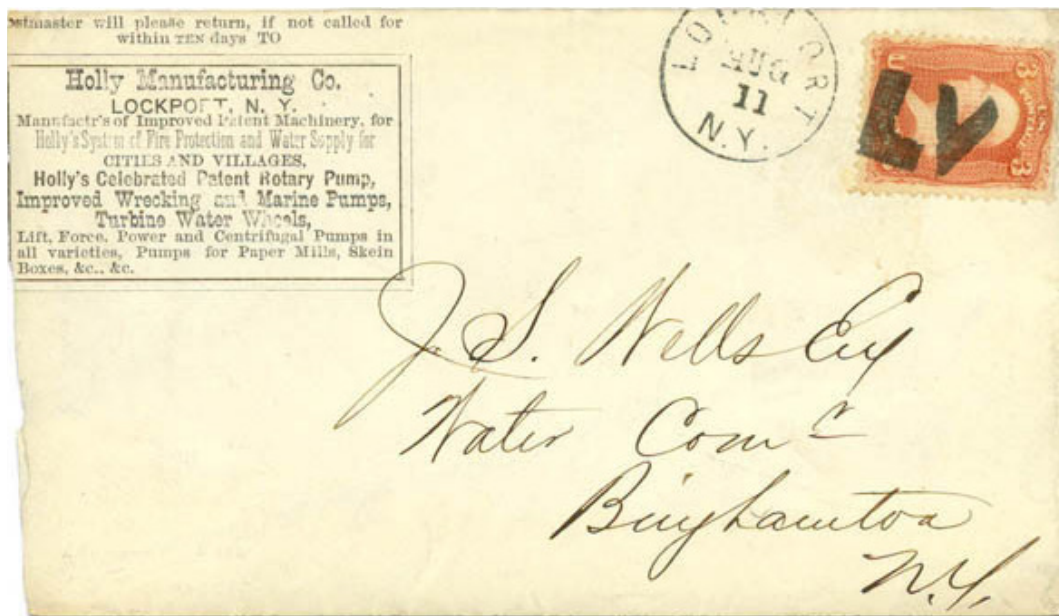 ostmaster will please return, if not called for
within TEN days TO
Holly Manufacturing Co.
LOCKPORT, N. Y.
Manufactr's of Improved Patent Machinery, for
Holly's System of Fire Protection and Water Supply for
CITIES AND VILLAGES,
Holly's Celebrated Patent Rotary Pump,
Improved Wrecking and Marine Pumps,
Turbine Water Wheels,
Lift, Force, Power and Centrifugal Pumps in
all varieties, Pumps for Paper Mills, Skein
Boxes, &c., &c.
LOCKPORT
AUG
11
N.Y.
U
3
U.S.
POSTAGE
3
J. S. Wells Esq
Water Comr
Binghamton
N.Y.